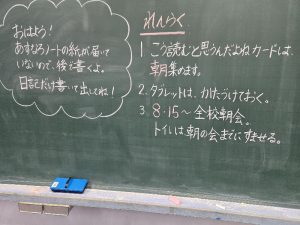 おはよう！
あすなろノートの紙が届いて
いないので、後で書くよ。
日記だけ書いて出してね！
れんらく
1. こう読むと思うんだよねカードは、
朝集めます。
2. タブレットは、かたづけておく。
3. 8:15〜 全校朝会。
トイレは朝の会までにすませる。